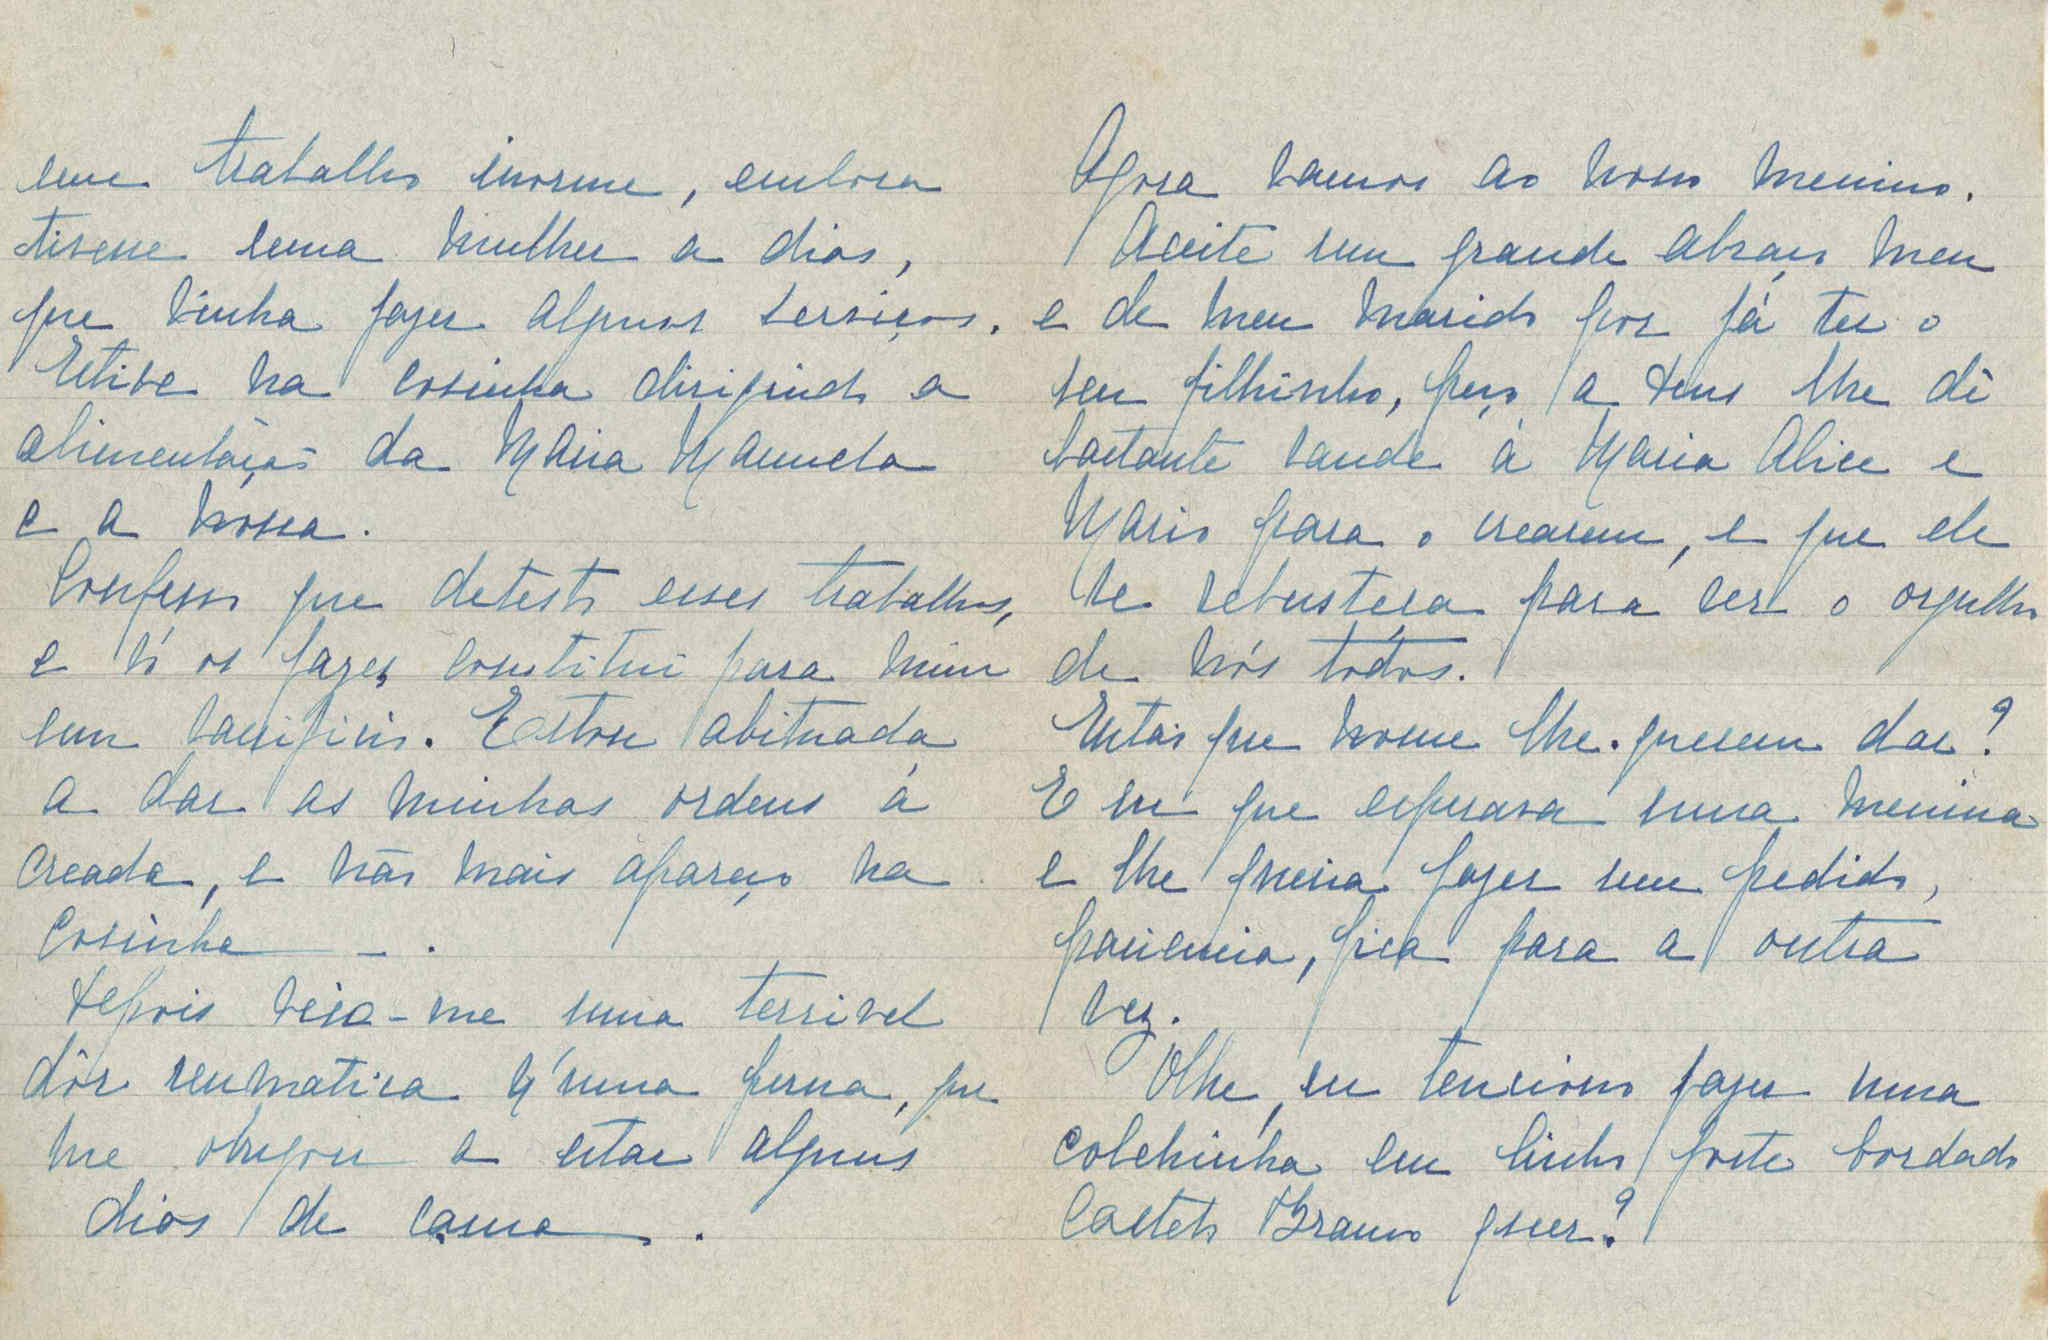 um trabalho inorme, embora
tivesse uma mulher a dias,
que vinha fazer alguns serviços.
Estive na cosinha dirigindo a
alimentação da Maria Manuela
e a nossa.
Confesso que detesto esses trabalhos,
e só os fazer constitui para mim
um sacrificio. Estou abituada
a dar as minhas ordens á
creada, e não mais apareço na
cosinha - .
Depois veio-me uma terrivel
dôr reumatica n'uma perna, que
me obrigou a estar alguns
dias de cama .
Agora vamos ao nosso menino.
Aceite um grande abraço meu
e de meu marido por já ter o
seu filhinho, peço a Deus lhe dê
bastante saude á Maria Alice e
Mario para o crearem, e que ele
se robusteça para ser o orgulho
de nós todos.
Então que nome lhe querem dar?
E eu que esperava uma menina
e lhe queria fazer um pedido,
paciencia, fica para a outra
vez.
Olhe, eu tenciono fazer uma
colchinha em linho forte bordado
Castelo Branco quer?